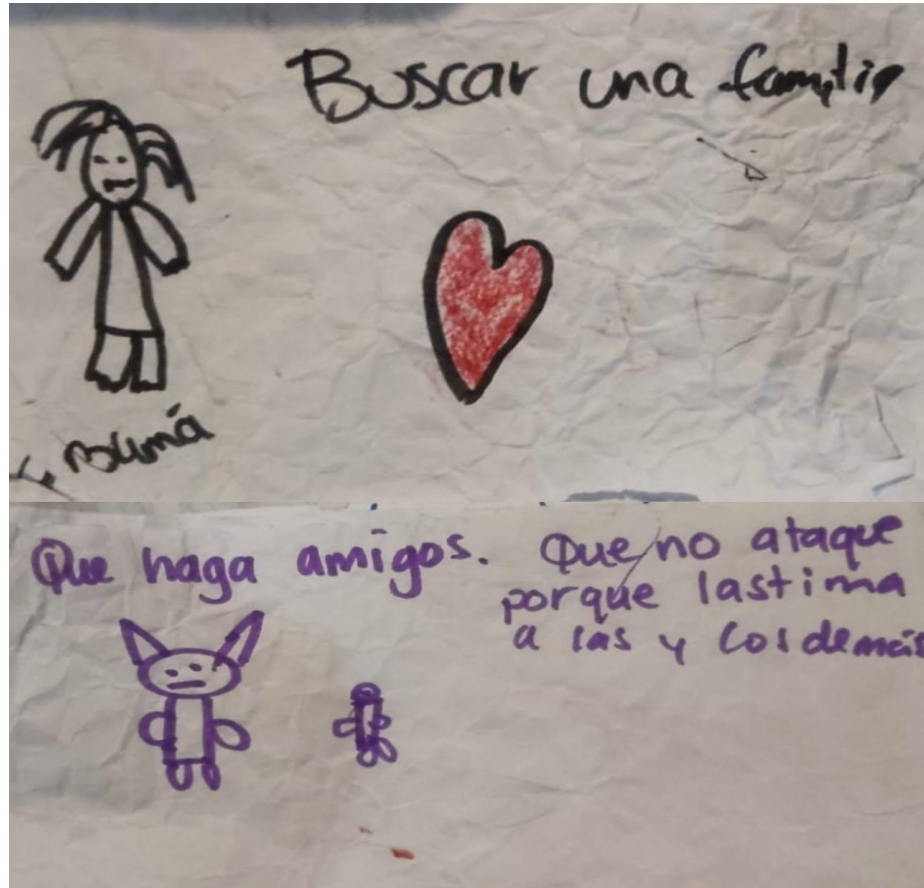 Buscar una familia
Que haga amigos. Que no ataque
porque lastima
a las y los demás